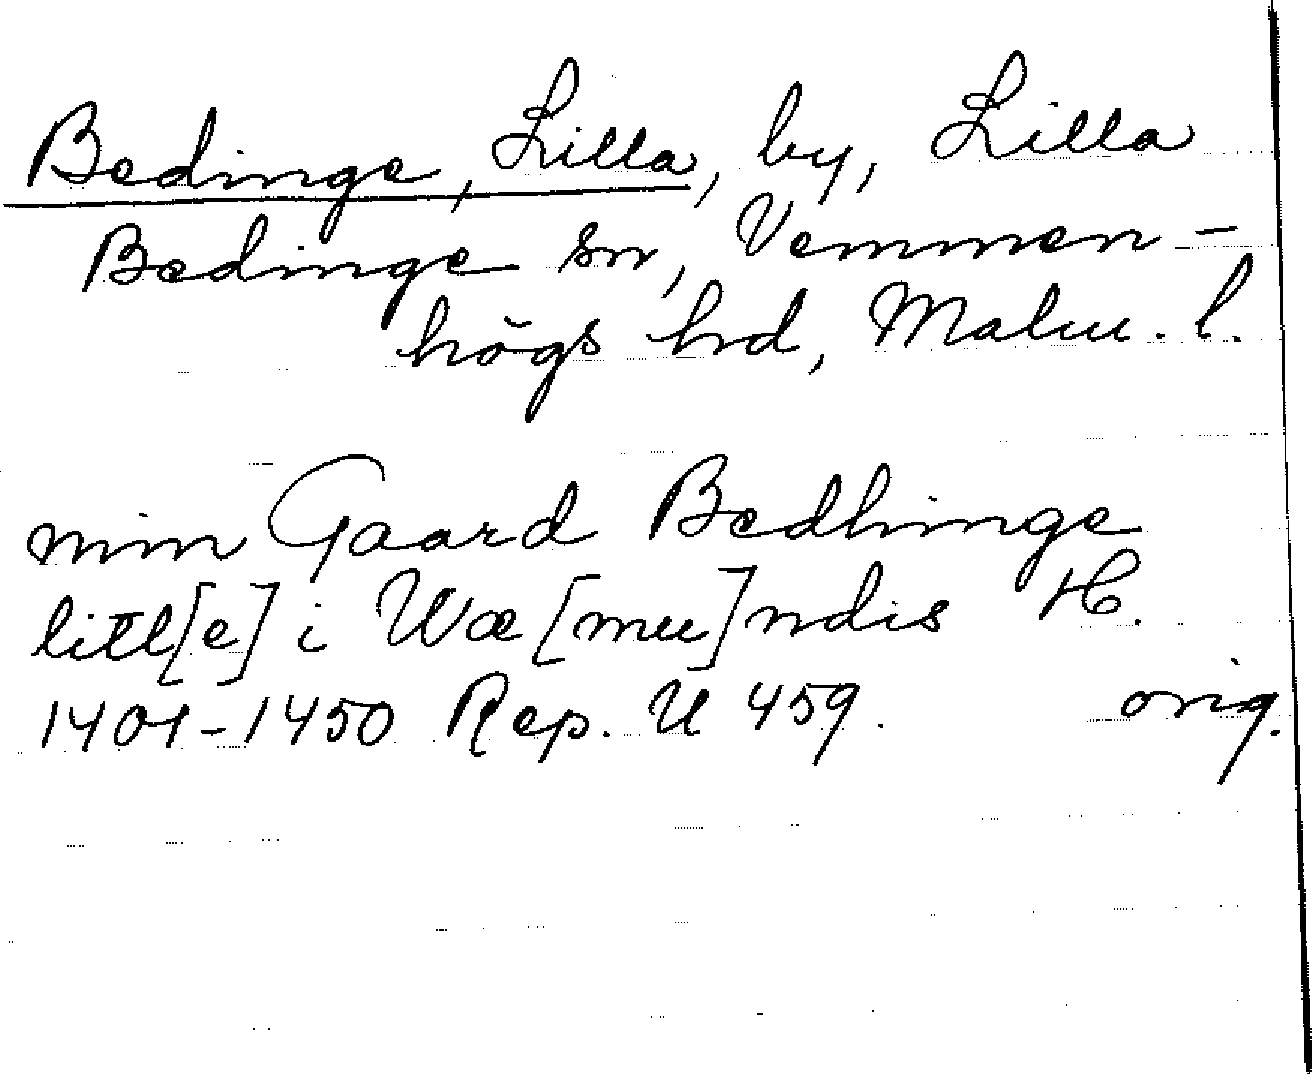 Bedinge, Lilla, by, Lilla
Bedinge sn, Vemmen-
högs hrd, Malm. l.
min Gaard Bedhinge
litl[e] i Wæ[me]ndis H.
1401-1450 Rep. U 459. orig.